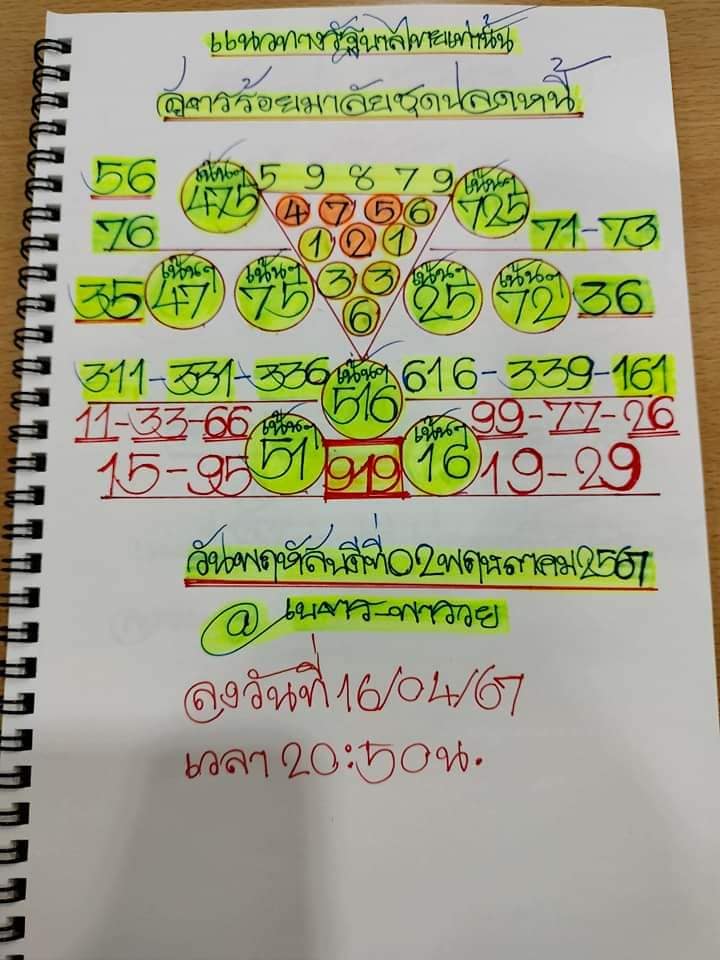 แนวทางรัฐบาลไทยเท่านั้น
อาจารร้อยมาลัยชุดปลดหนี้
56 เน้นๆ 475 5 9 8 7 9 เน้นๆ 725
76 4 7 5 6 71-73
1 2 1
35 เน้นๆ 47 เน้นๆ 75 3 3 เน้นๆ 25 เน้นๆ 72 36
6
311-331-336 เน้นๆ 516 616-339-161
11-33-66 99-77-26
15-95 เน้นๆ 51 919 เน้นๆ 16 19-29
วันพฤหัสบดีที่02พฤษภาคม2567
@เบจาร-พารวย
ลงวันที่ 16/04/67
เวลา 20:50น.